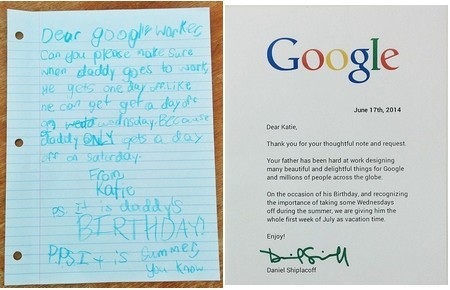 Dear google worker,
Can you please make sure
when daddy goes to work,
he gets one day off. Like
he can get get a day off
on wednesday. Because
daddy ONLY gets a day
off on Saturday.
From,
Katie
PS It is daddy's
BIRTHDAY!
PPS It is summer,
you know
Google
June 17th, 2014
Dear Katie,
Thank you for your thoughtful note and request.
Your father has been hard at work designing
many beautiful and delightful things for Google
and millions of people across the globe.
On the occasion of his Birthday, and recognizing
the importance of taking some Wednesdays
off during the summer, we are giving him the
whole first week of July as vacation time.
Enjoy!
Daniel Shiplacoff